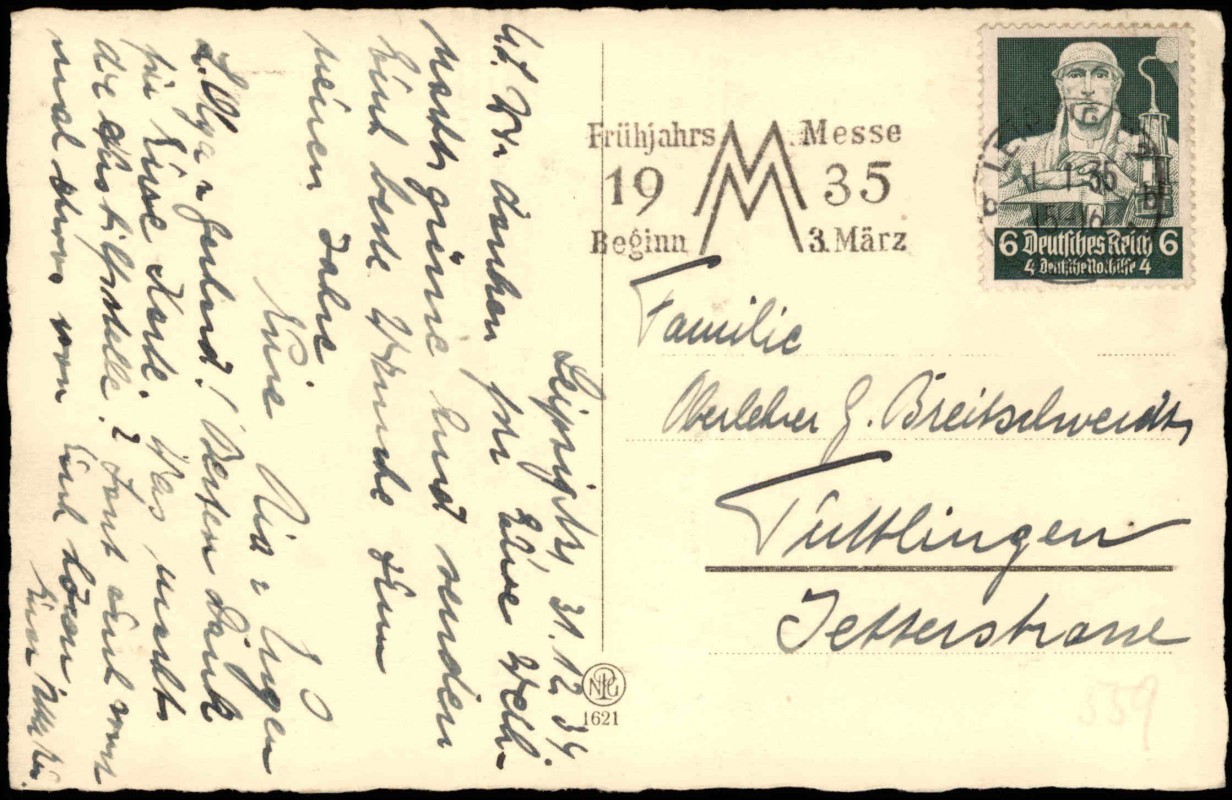 Leipzig, 31.12.34.
Wir danken für Eure Weih-
nachtsgrüße und senden
Euch beste Wünsche zum
neuen Jahr.
Eure Ria u. Eugen
L. Olga u. Gerhard! Besten Dank
für Eure Karte. Was macht
die
mal etwas von Euch hören.
Frühjahrs Messe
19 35
Beginn 3. März
6 Deutsches Reich 6
4 Deutsche Nothilfe 4
Familie
Oberlehrer G. Breitschwerdt,
Tuttlingen
Jetterstrasse
NPG
1621
559